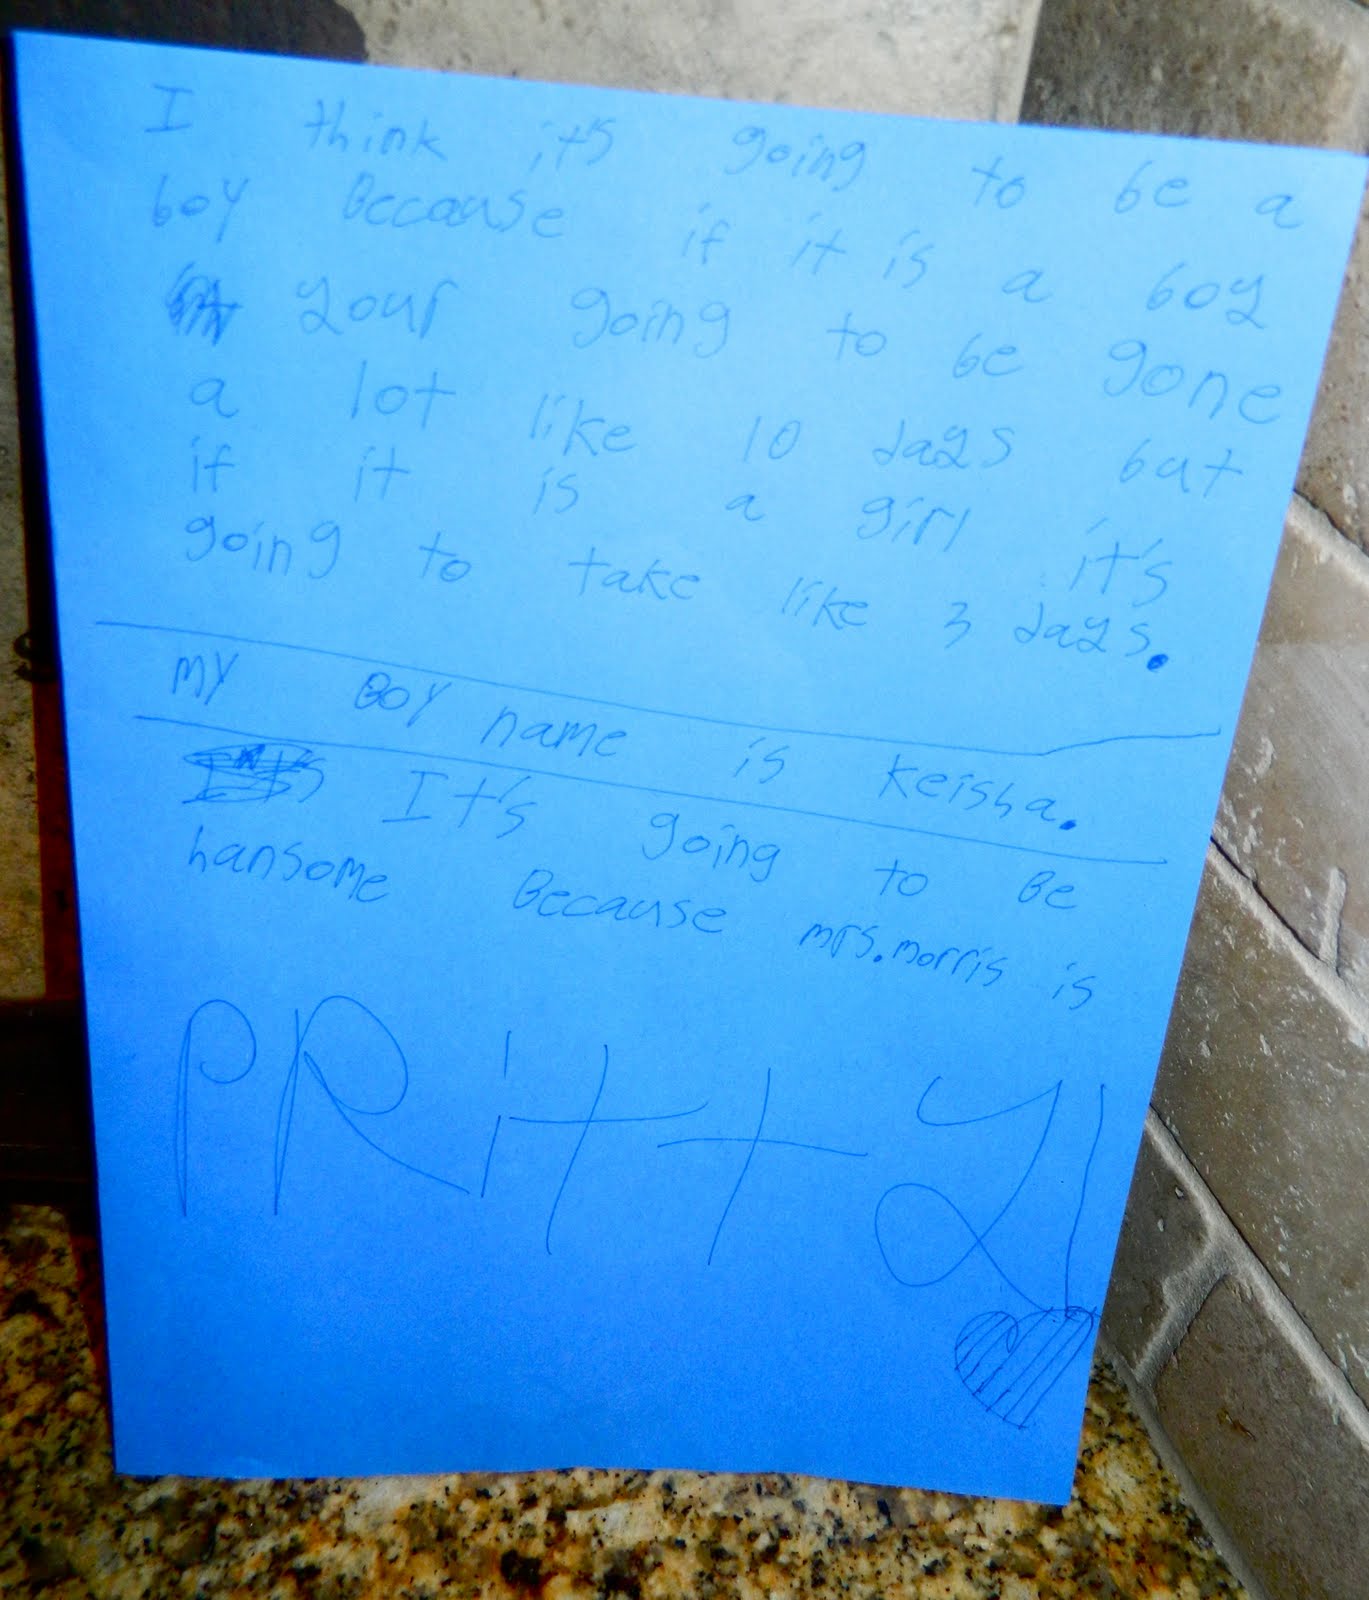 I think it's going to be a
boy Because if it is a boy
your going to be gone
a lot like 10 days but
if it is a girl it's
going to take like 3 days.
my Boy name is keisha.
It's going to Be
hansome Because mrs.morris is
PRitty!